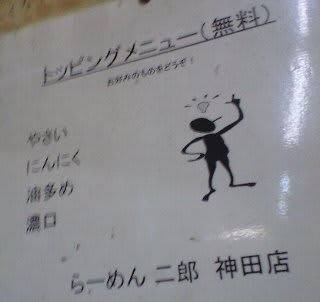 トッピングメニュー(無料)
お好みのものをどうぞ！
やさい
にんにく
油多め
濃口
らーめん 二郎 神田店